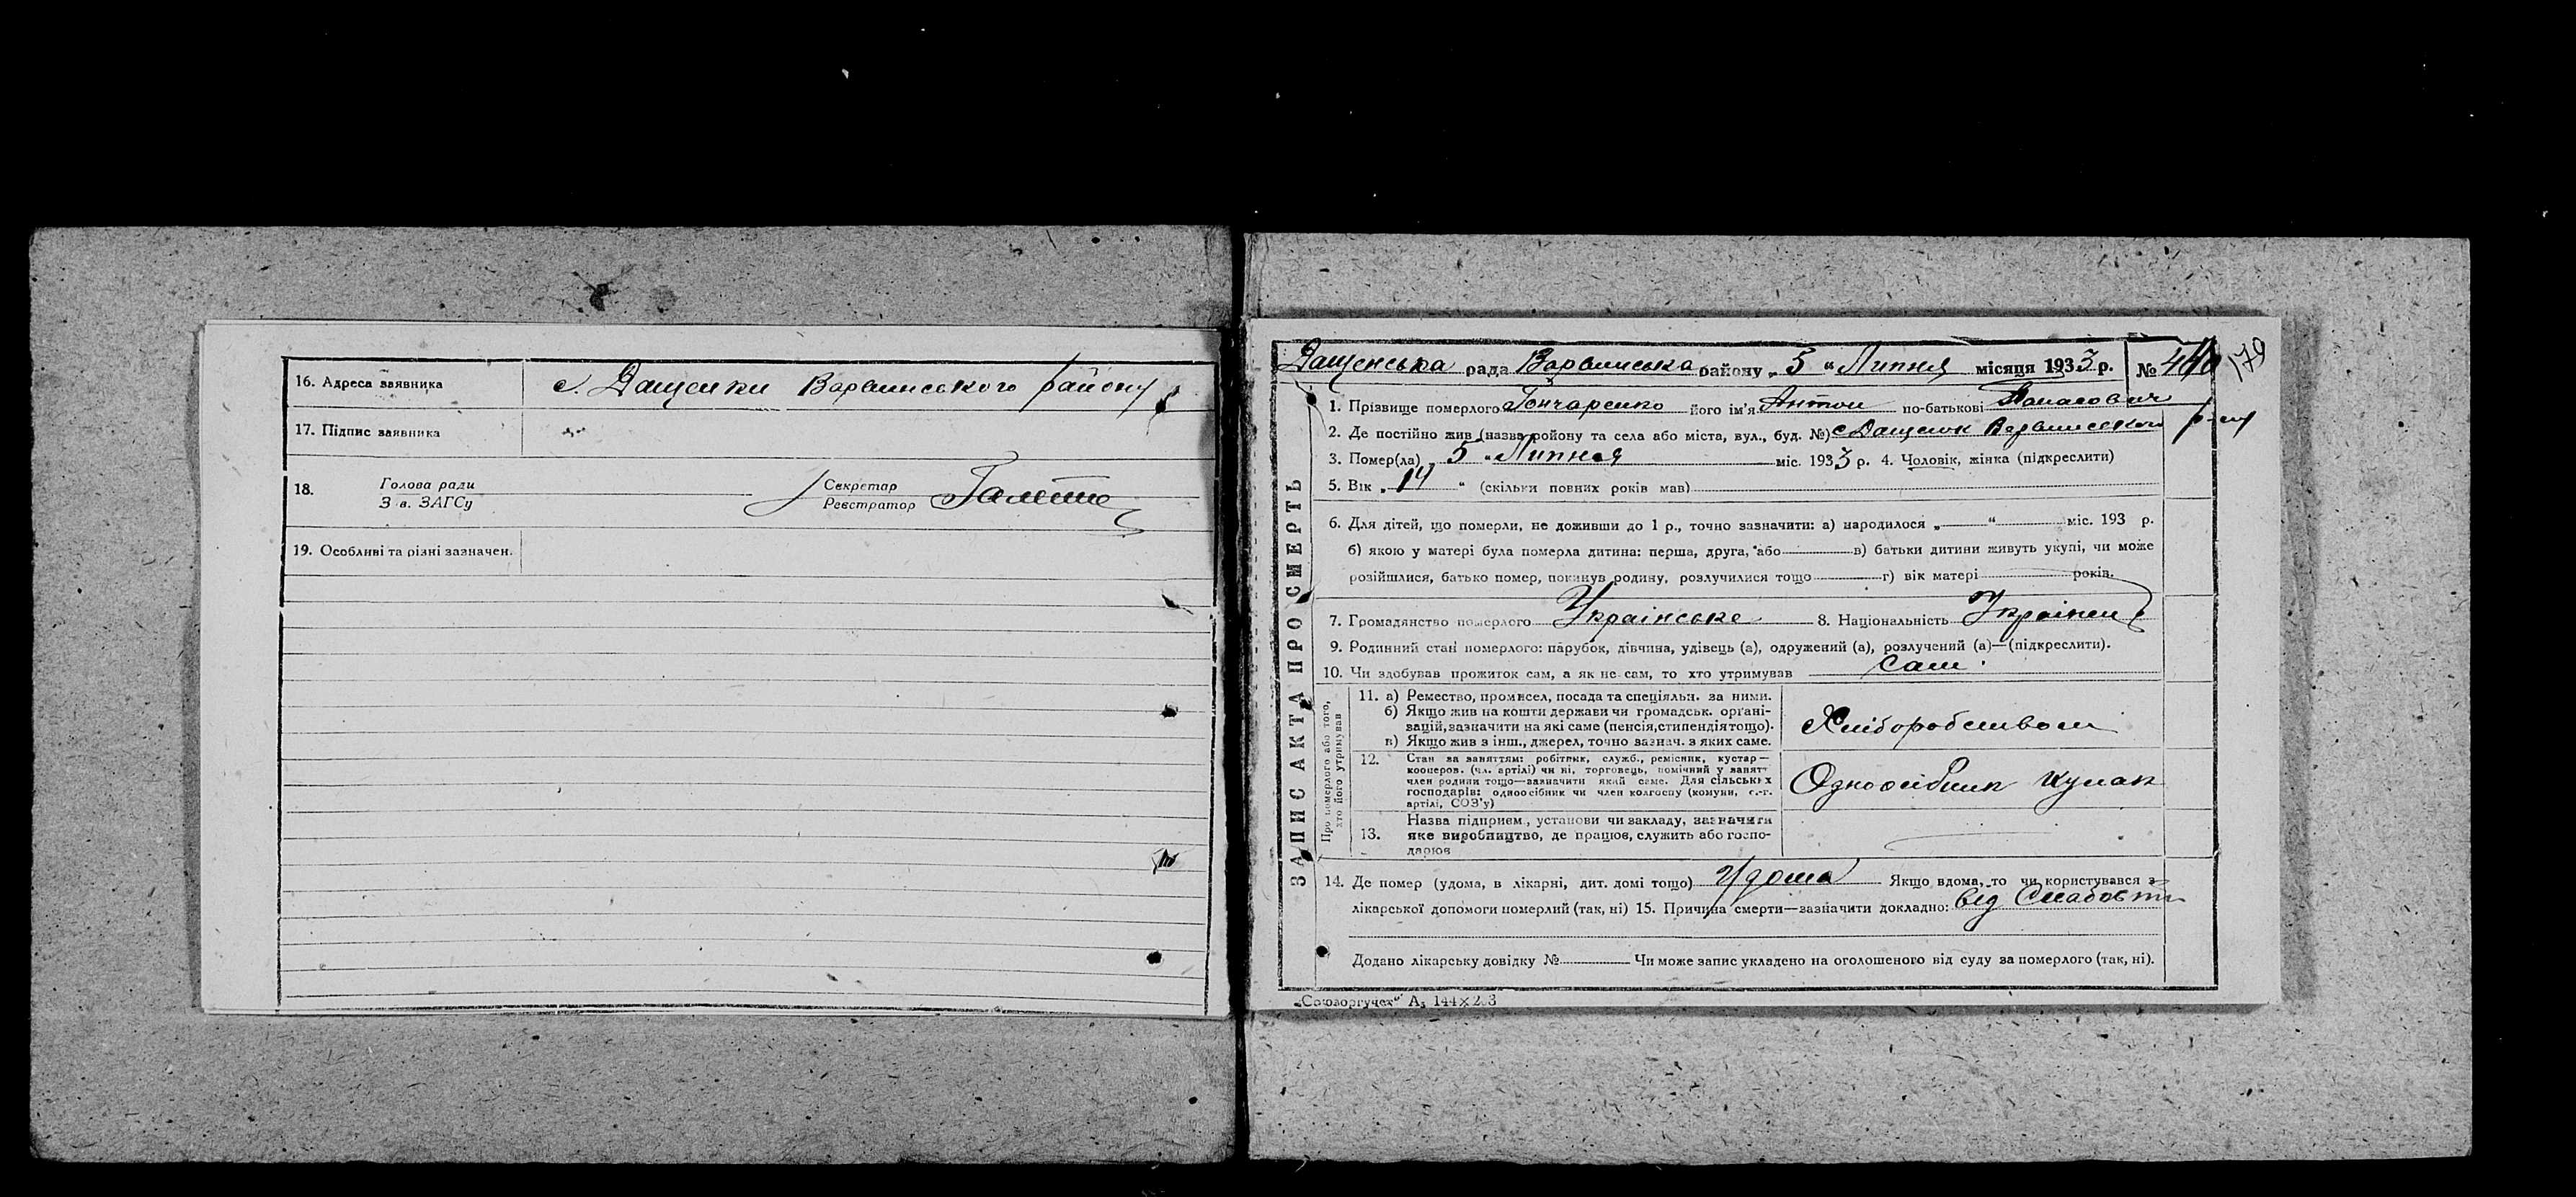 16. Адреса заявника с. Дащенки Варвинського району
17. Підпис заявника
18. Голова ради Секретар
З в. ЗАГСу Реєстратор
19. Особливі та різні зазначен.
ЗАПИС АКТА ПРО СМЕРТЬ
Дащенська рада Варвинська району „ 5 “ Липня місяця 1933 р. № 440
179
1. Прізвище померлого Гончаренко його ім'я Антон по-батькові Панасович
2. Де постійно жив (назва ройону та села або міста, вул., буд. №) с Дащенок Варвинського р-ну
3. Помер(ла) „ 5 “ Липня міс. 1933 р. 4. Чоловік, жінка (підкреслити)
5. Вік „ 14 “ (скільки повних років мав)
6. Для дітей, що померли, не доживши до 1 р., точно зазначити: а) народилося „ “ міс. 193 р.
б) якою у матері була померла дитина: перша, друга, або в) батьки дитини живуть укупі, чи може
розійшлися, батько помер, покинув родину, розлучилися тощо г) вік матері років.
7. Громадянство померлого Українське 8. Національність
9. Родинний стан померлого: парубок, дівчина, удівець (а), одружений (а), розлучений (а)—(підкреслити).
10. Чи здобував прожиток сам, а як не сам, то хто утримував Сам
Про померлого або того, хто його утримував
11. а) Ремество, промисел, посада та спеціяльн. за ними.
б) Якщо жив на кошти держави чи громадськ. органі-
зацій, зазначити на які саме (пенсія, стипендія тощо).
в) Якщо жив з інш., джерел, точно зазнач. з яких саме.
Хліборобством
12. Стан за заняттям: робітник, служб., ремісник, кустар—
кооперов. (чл. артілі) чи ні, торговець, помічний у занятт
член родини тощо—зазначити який саме. Для сільських
господарів: одноосібник чи член колгоспу (комуни, с.-г.
артілі, СОЗ'у)
Одноосібник кулак
13. Назва підприєм., установи чи закладу, зазначити
яке виробництво, де працює, служить або госпо-
дарює
14. Де помер (удома, в лікарні, дит. домі тощо) Удома Якщо вдома, то чи користувався з
лікарської допомоги померлий (так, ні) 15. Причина смерти—зазначити докладно: від Слабости
Додано лікарську довідку № Чи може запис укладено на оголошеного від суду за померлого (так, ні).
„Союзоргучет“ А₅ 144×203